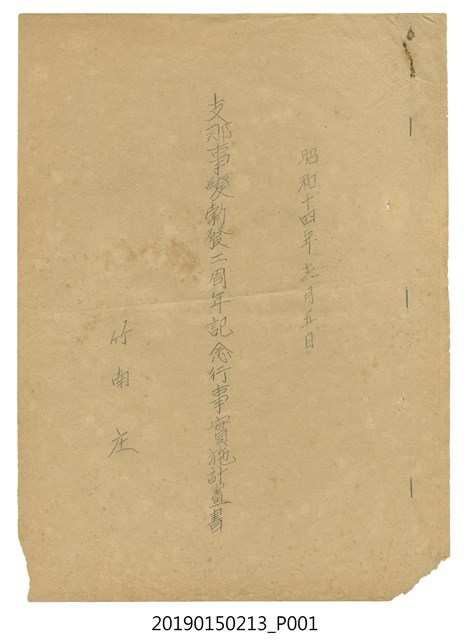 昭和十四年七月五日
支那事變勃發二周年記念行事實施計畫書
竹南庄
20190150213_P001